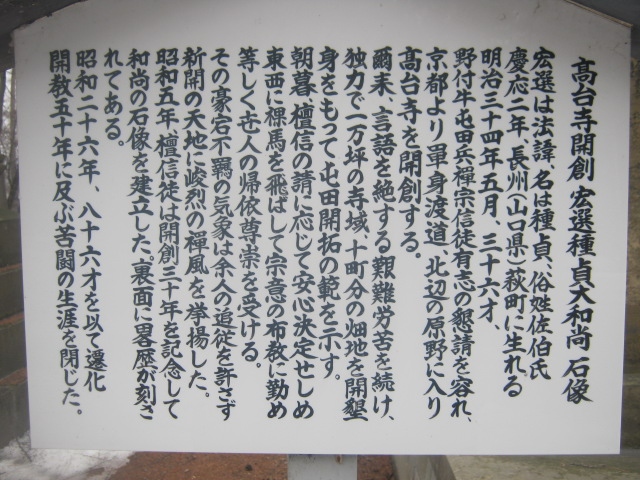 高台寺開創 宏選種貞大和尚 石像
宏選は法諱、名は種貞、俗姓佐伯氏
慶応二年、長州(山口県)萩町に生れる
明治三十四年五月、三十六才、
野付牛屯田兵禅宗信徒有志の懇請を容れ、
京都より単身渡道、北辺の原野に入り
高台寺を開創する。
爾来、言語を絶する艱難労苦を続け、
独力で一万坪の寺域、十町分の畑地を開墾
身をもって屯田開拓の範を示す。
朝暮、檀信の請に応じて安心決定せしめ
東西に裸馬を飛ばして宗意の布教に勤め
等しく世人の帰依尊崇を受ける。
その豪宕不羈の気象は余人の追従を許さず
新開の天地に峻烈の禅風を挙揚した。
昭和五年、檀信徒は開創三十年を記念して
和尚の石像を建立した。裏面に畧歴が刻さ
れてある。
昭和二十六年、八十六才を以て遷化
開教五十年に及ぶ苦闘の生涯を閉じた。